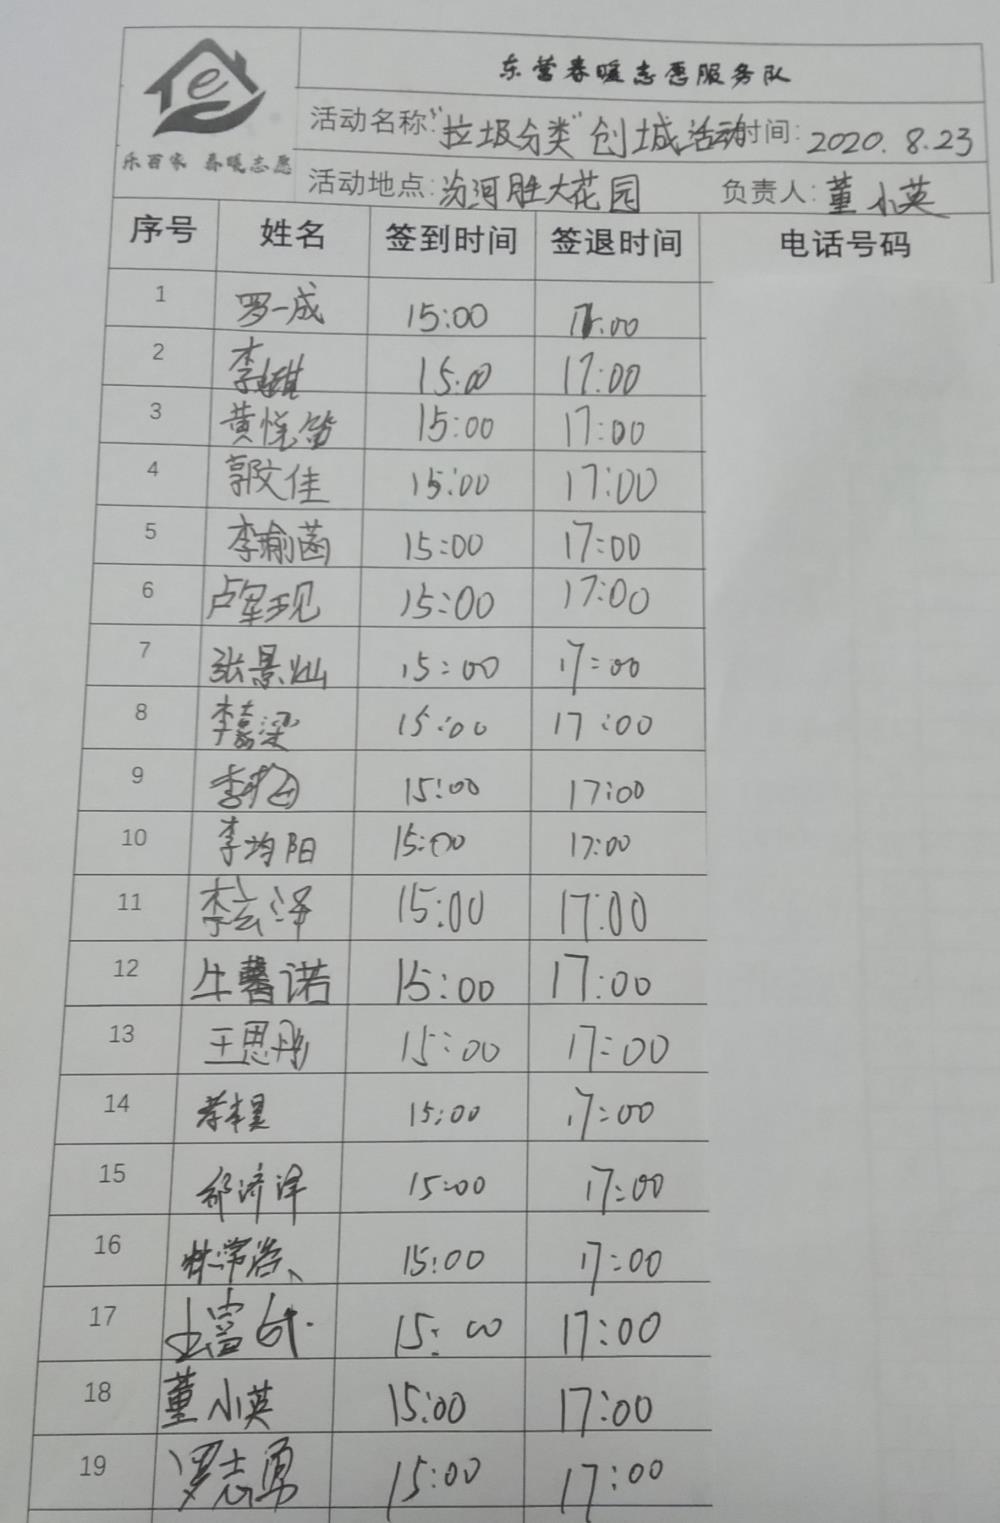 东营春暖志愿服务队
乐百家 春暖志愿
活动名称:"垃圾分类"创城活动时间: 2020.8.23
活动地点:汾河胜大花园 负责人:董小英
序号 姓名 签到时间 签退时间 电话号码
1 罗一成 15:00 17:00
2 李 15:00 17:00
3 黄悦 15:00 17:00
4 郭文佳 15:00 17:00
5 李瑜菡 15:00 17:00
6 卢 15:00 17:00
7 张景灿 15:00 17:00
8 李嘉梁 15:00 17:00
9 李 15:00 17:00
10 李均阳 15:00 17:00
11 李云泽 15:00 17:00
12 牛馨诺 15:00 17:00
13 王思彤 15:00 17:00
14 15:00 17:00
15 祁济泽 15:00 17:00
16 林 15:00 17:00
17 15:00 17:00
18 董小英 15:00 17:00
19 罗志勇 15:00 17:00